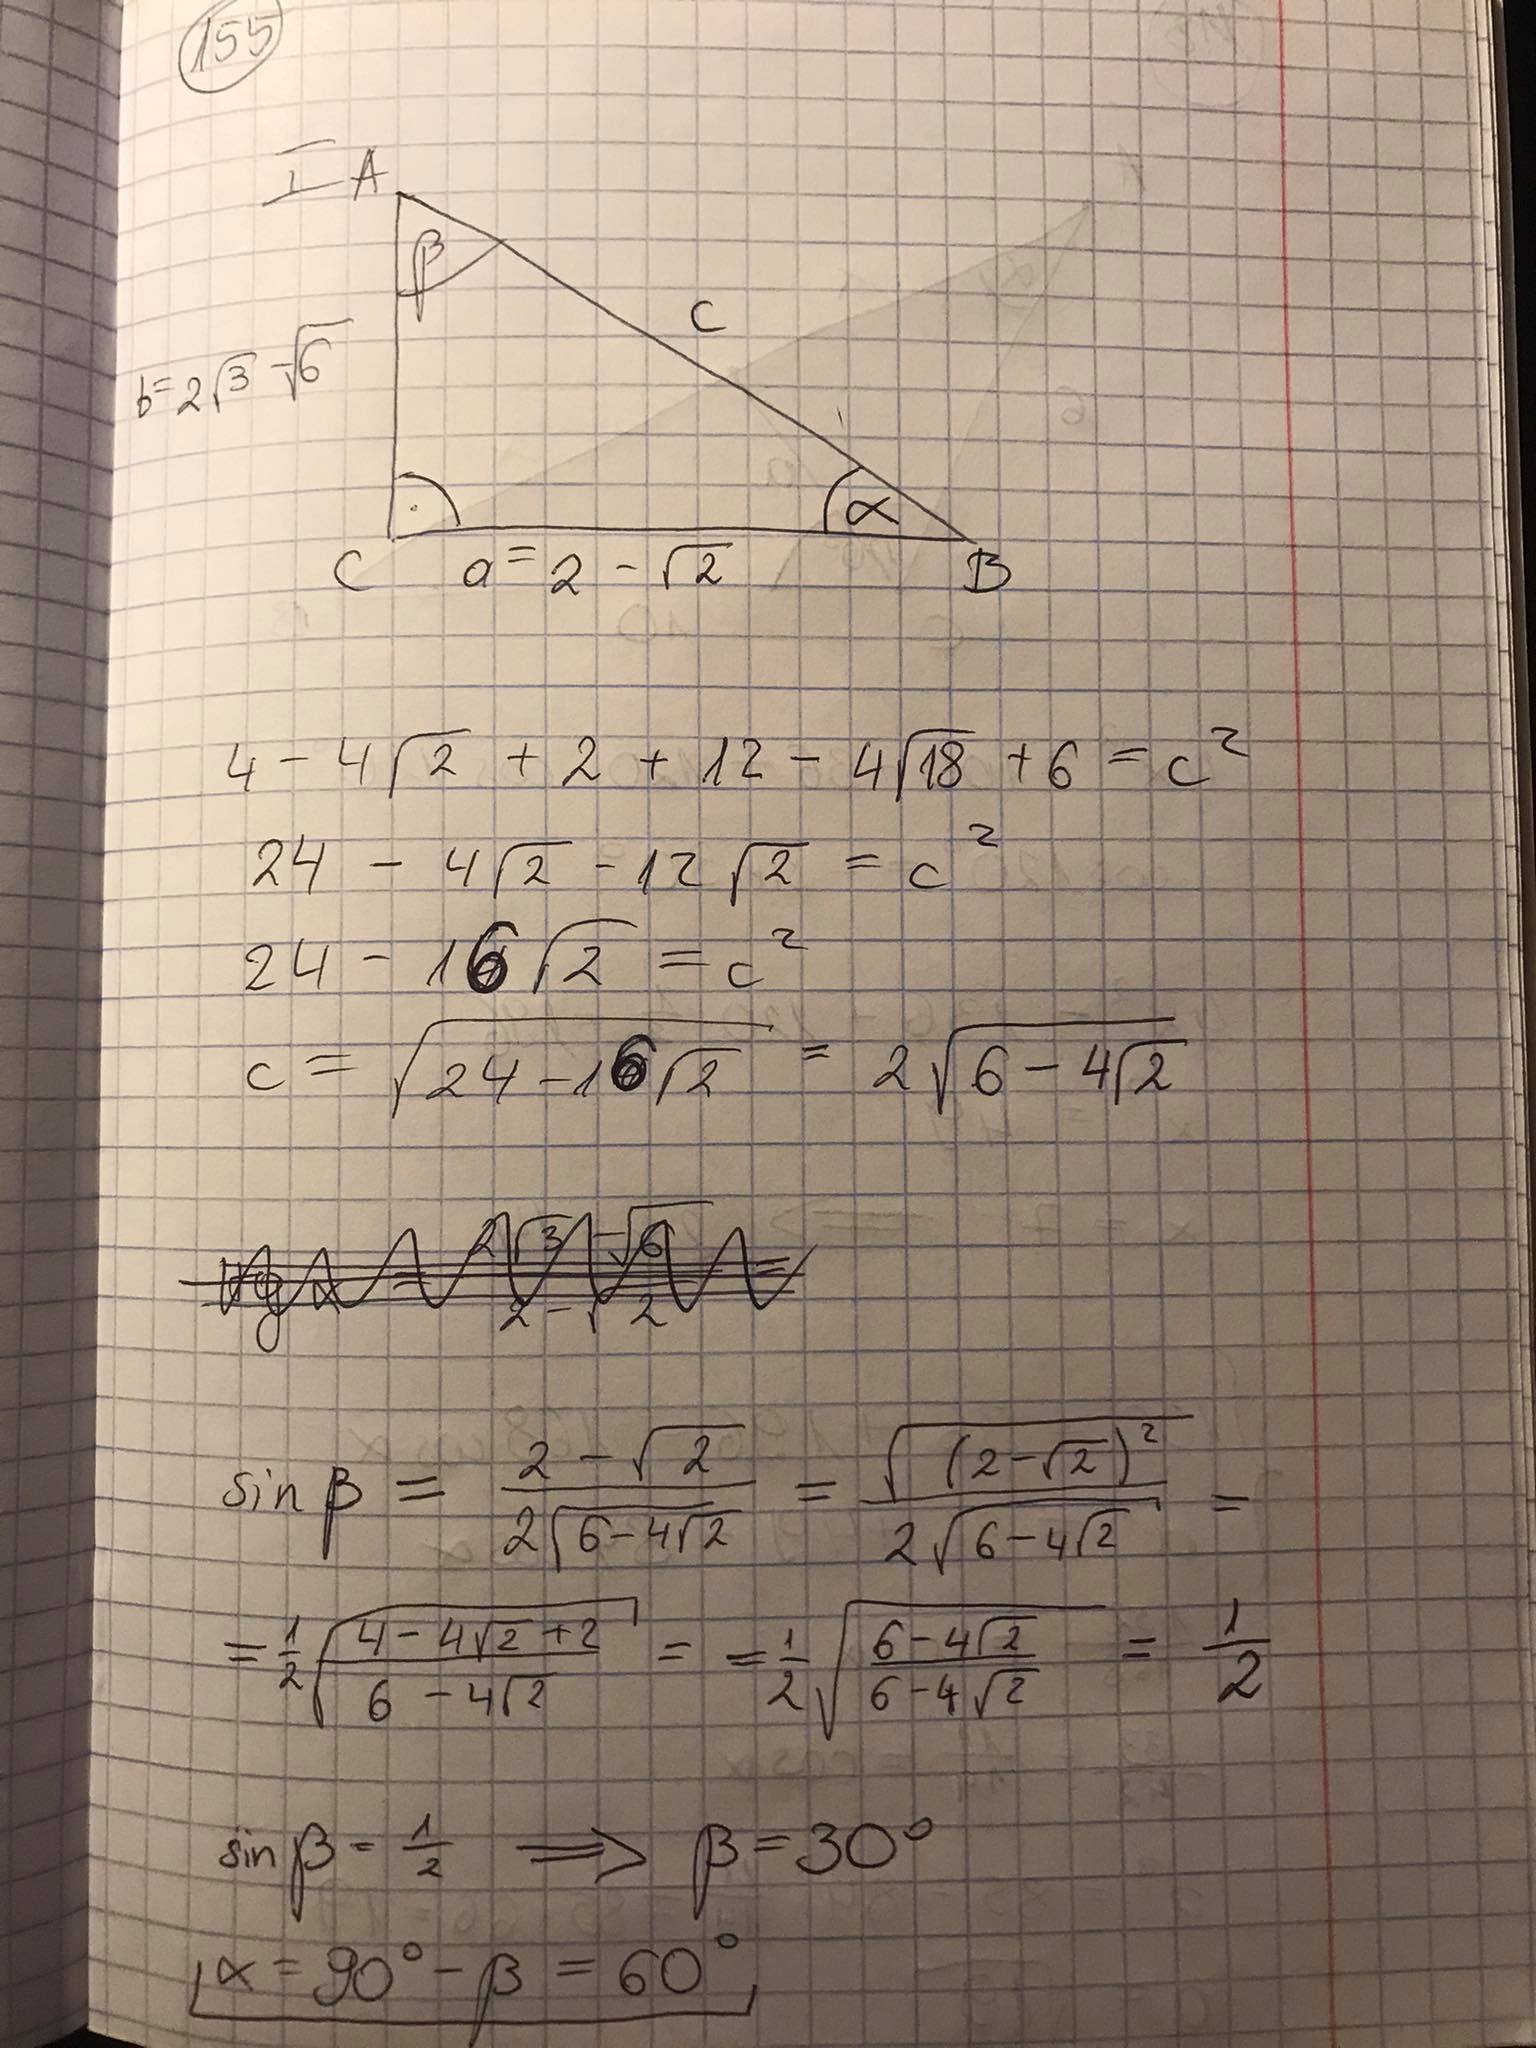 155
I A
β
c
b=2√3-√6
α
C a=2-√2 B
4-4√2+2+12-4√18+6=c²
24-4√2-12√2=c²
24-16√2=c²
c=√(24-16√2)=2√(6-4√2)
tg α = (2√3-√6)/(2-√2) =
sin β = (2-√2)/(2√(6-4√2)) = √((2-√2)²)/(2√(6-4√2)) =
= 1/2 √((4-4√2+2)/(6-4√2)) = = 1/2 √((6-4√2)/(6-4√2)) = 1/2
sin β = 1/2 ⟹ β=30°
α=90°-β=60°